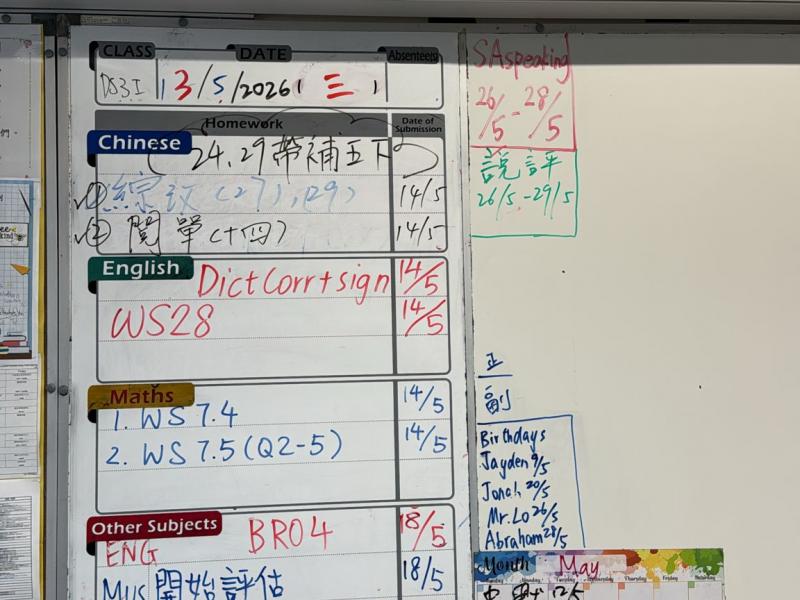 CLASS DATE Absentee(s)
DS3I 13/5/2026 (三)
Homework Date of Submission
Chinese
24, 29帶補五下
① 綜攷(27),(29) 14/5
② 閱單(十四) 14/5
English
Dict Corr+sign 14/5
WS28 14/5
Maths
1. WS 7.4 14/5
2. WS 7.5 (Q2-5) 14/5
Other Subjects
ENG BR04 18/5
Mus 開始評估 18/5
SA speaking
26/5 - 28/5
說評
26/5 - 29/5
正
副
Birthdays
Jayden 9/5
Jonah 20/5
Mr. Lo 26/5
Abraham 28/5
Month May